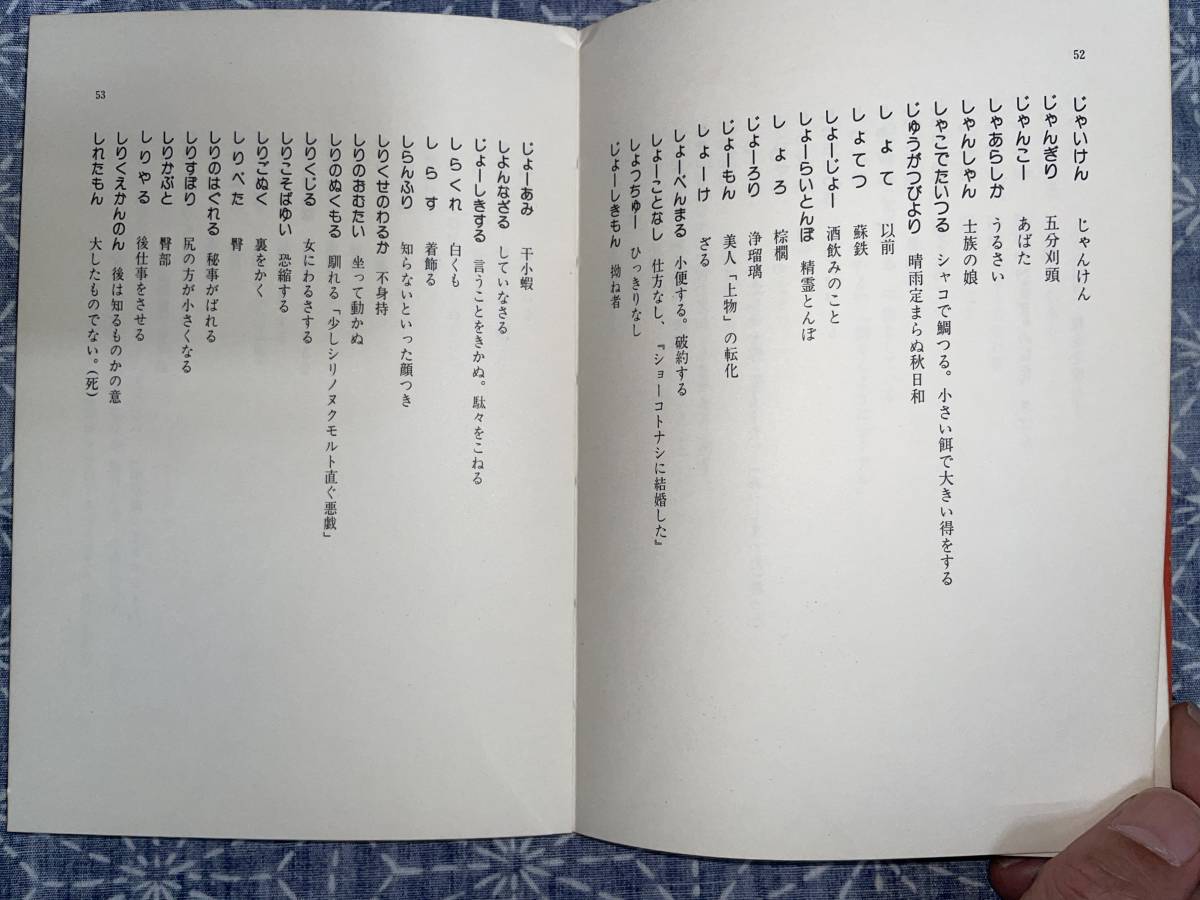 52
じゃいけん　じゃんけん
じゃんぎり　五分刈頭
じゃんこー　あばた
しゃあらしか　うるさい
しゃんしゃん　士族の娘
しゃこでたいつる　シャコで鯛つる。小さい餌で大きい得をする
じゅうがつびより　晴雨定まらぬ秋日和
しょて　以前
しょてつ　蘇鉄
しょーじょー　酒飲みのこと
しょーらいとんぼ　精霊とんぼ
しょろ　棕櫚
じょーろり　浄瑠璃
じょーもん　美人「上物」の転化
しょーけ　ざる
しょーべんまる　小便する。破約する
しょーことなし　仕方なし、『ショーコトナシに結婚した』
しょっちゅー　ひっきりなし
じょーしきもん　拗ね者
じょーあみ　干小蝦
しよんなざる　していなさる
じょーしきする　言うことをきかぬ。駄々をこねる
しらくれ　白くも
しらす　着飾る
しらんふり　知らないといった顔つき
しりくせのわるか　不身持
しりのおむたい　坐って動かぬ
しりのぬくもる　馴れる「少しシリノヌクモルト直ぐ悪戯」
しりくじる　女にわるさする
しりこそばゆい　恐縮する
しりごぬく　裏をかく
しりべた　臀
しりのはぐれる　秘事がばれる
しりすぼり　尻の方が小さくなる
しりかぶと　臀部
しりやる　後仕事をさせる
しりくえかんのん　後は知るものかの意
しれたもん　大したものでない。（死）
53